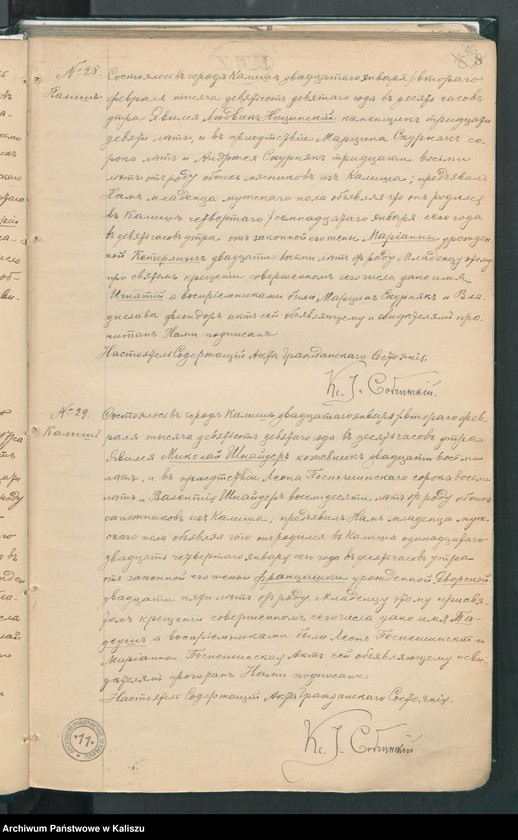 16
8
№ 28.
Калишъ
Состоялось въ городѣ Калишѣ двадцатаго января / втораго
февраля тысяча девятьсотъ девятаго года въ десять часовъ
утра. Явился Людвикъ Ницинскій каменщикъ тридцати
девяти лѣтъ, и въ присутствіи Марцина Скурнякъ со-
рока лѣтъ и Андржея Скурнякъ тридцати восьми
лѣтъ отъ роду обоихъ мясниковъ изъ Калиша; предъявилъ
Намъ младенца мужскаго пола объявляя что онъ родился
въ Калишѣ четвертаго / семнадцатаго января сего года
въ девять часовъ утра отъ законной его жены Маріанны урожден-
ной Катерлинъ двадцати восьми лѣтъ отъ роду Младенцу этому
при святомъ крещеніи совершенномъ сего числа дано имя
Игнатій а воспріемниками были Марцинъ Скурнякъ и Вла-
дислава актъ сей объявляющему и свидѣтелямъ про-
читанъ Нами подписанъ
Настоятель Содержащій Акты Гражданскаго Состоянія.
Кс. І. Собчинскій.
№ 29.
Калишъ
Состоялось въ городѣ Калишѣ двадцатаго января / втораго фев-
раля тысяча девятьсотъ девятаго года въ десять часовъ утра
Явился Миколай Шнайдеръ кожевникъ двадцати восьми
лѣтъ, и въ присутствіи Леона Поспешинскаго сорока восьми
лѣтъ и Валентія Шнайдеръ восемидесяти лѣтъ отъ роду обоихъ
сапожниковъ изъ Калиша; предъявилъ Намъ младенца муж-
скаго пола объявляя что онъ родился въ Калишѣ одинадцатаго
двадцать четвертаго января сего года въ десять часовъ утра
отъ законной его жены Францишки урожденной Яворской
двадцати пяти лѣтъ отъ роду Младенцу этому при свя-
томъ крещеніи совершенномъ сего числа дано имя Та-
деушъ а воспріемниками были Леонъ Поспешинскій и
Маріанна Поспешинская Актъ сей объявляющему и сви-
дѣтелямъ прочитанъ Нами подписанъ
Настоятель Содержащій Акты Гражданскаго Состоянія.
Кс. І. Собчинскій
ARCHIWUM PAŃSTWOWE W KALISZU
*11*
Archiwum Państwowe w Kaliszu